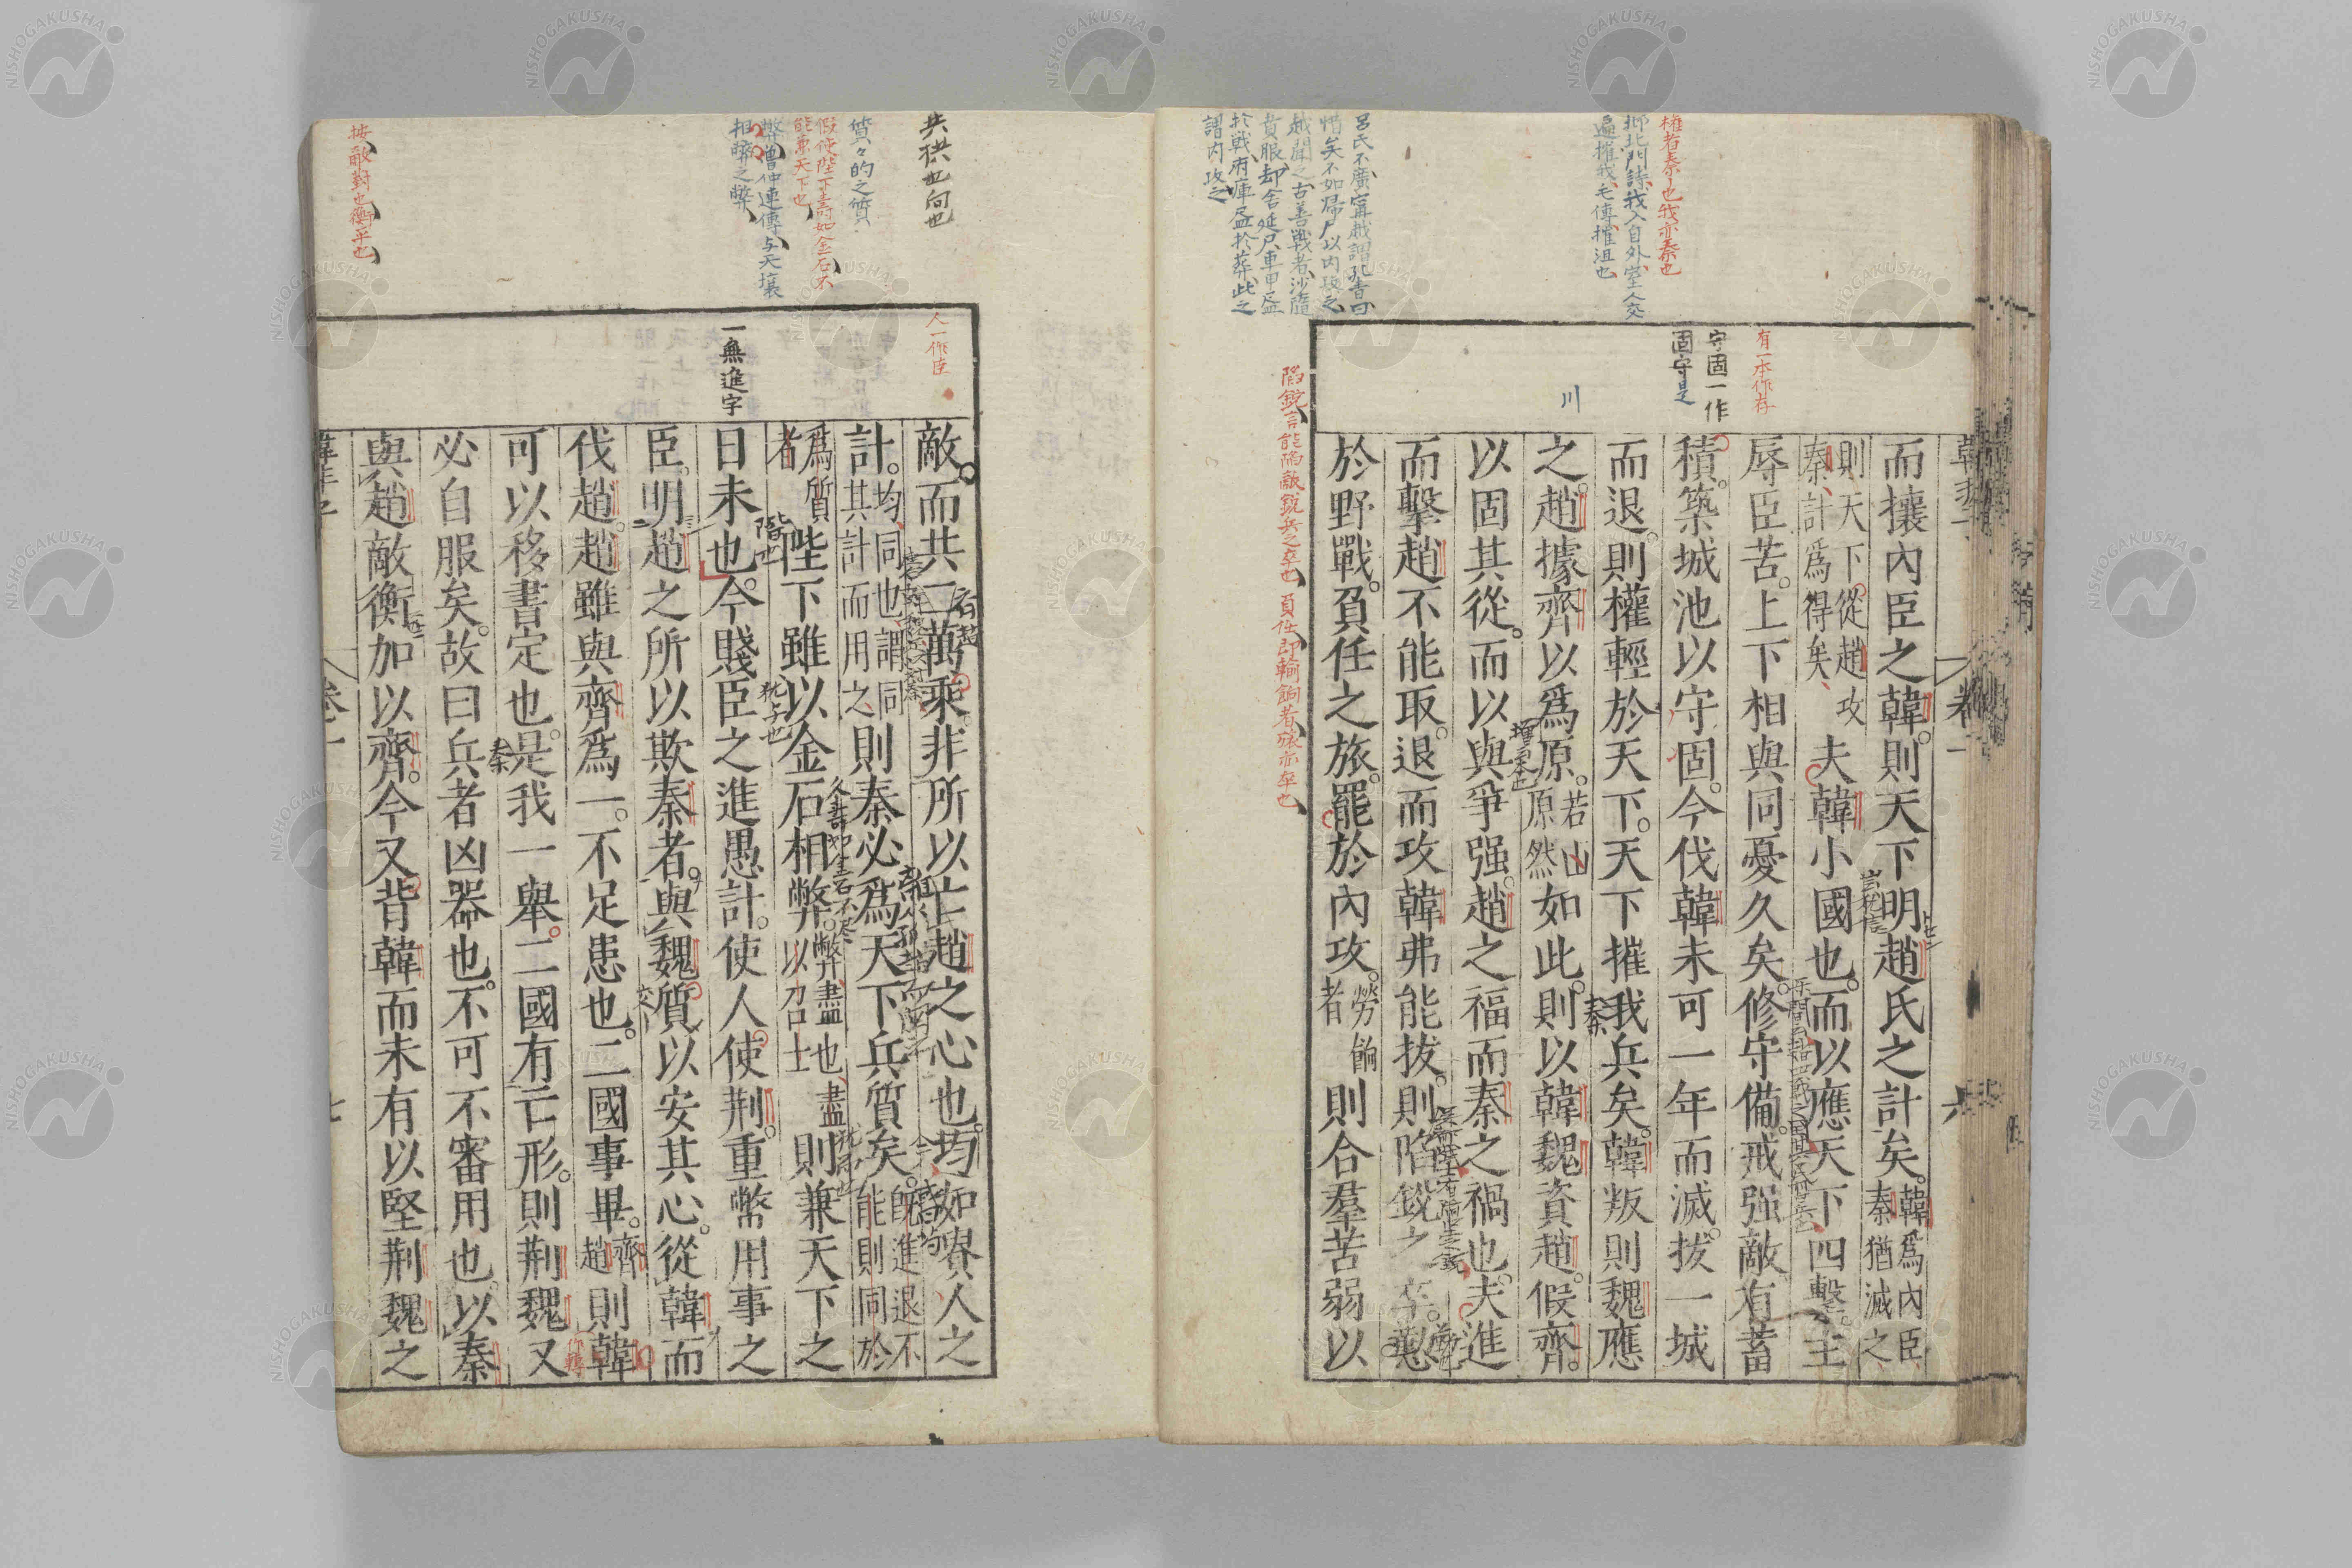 而攘內臣之韓。則天下明趙氏之計矣。韓爲內臣秦猶滅之
則天下從趙攻秦計爲得矣 夫韓小國也。而以應天下四擊。主
辱臣苦。上下相與同憂久矣。修守備。戒强敵。有蓄
積。築城池以守固。今伐韓未可一年而滅。拔一城
而退。則權輕於天下。天下摧我兵矣。韓叛則魏應
之。趙據齊以爲原。若山原然如此。則以韓魏資趙。假齊。
以固其從。而以與爭强。趙之福而秦之禍也。夫進
而擊趙不能取。退而攻韓弗能拔。則陷銳之卒。懃
於野戰。負任之旅。罷於內攻。勞餉者則合羣苦弱以
敵。而共二萬乘。非所以亡趙之心也。均如貴人之
計。均同也謂同其計而用之則秦必爲天下兵質矣。旣進退不能則同於
爲質者陛下雖以金石相弊。弊盡也盡以召士則兼天下之
日未也。今賤臣之進愚計。使人使荆。重幣用事之
臣。明趙之所以欺秦者。與魏質以安其心。從韓而
伐趙。趙雖與齊爲一。不足患也。二國事畢。齊趙則韓
可以移書定也。是我一舉。二國有亡形。則荆魏又
必自服矣。故曰兵者凶器也。不可不審用也。以秦
與趙敵衡。加以齊。今又背韓。而未有以堅荆魏之
有一本作存
守固一作
固守是
人一作臣
一無進字
權者秦
邶北門詩我入自外室人交
徧摧我毛傳摧沮也
呂氏不廣甯越謂孔青曰
惜矣不如歸尸以內攻之
越聞之古善戰者沙隨
賁服却舍延尸車甲盡
於戰府庫盡於葬此之
謂內攻之
陷銳言能陷敵銳兵之卒也負任即輸餉者旅亦卒也
共拱也向也
質々的之質
假使陛下壽如金石不
能兼天下也
弊魯仲連傳与天壤
相弊之弊
按敵對也衡平也
NISHOGAKUSHA